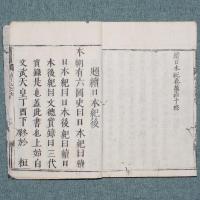 續日本紀卷第四十終
題續日本紀後
本朝有六國史曰日本紀曰續
日本紀曰日本後紀曰續日
本後紀曰文德實錄曰三代
實錄是也蓋此書也上始自
文武天皇丁酉下終於 桓